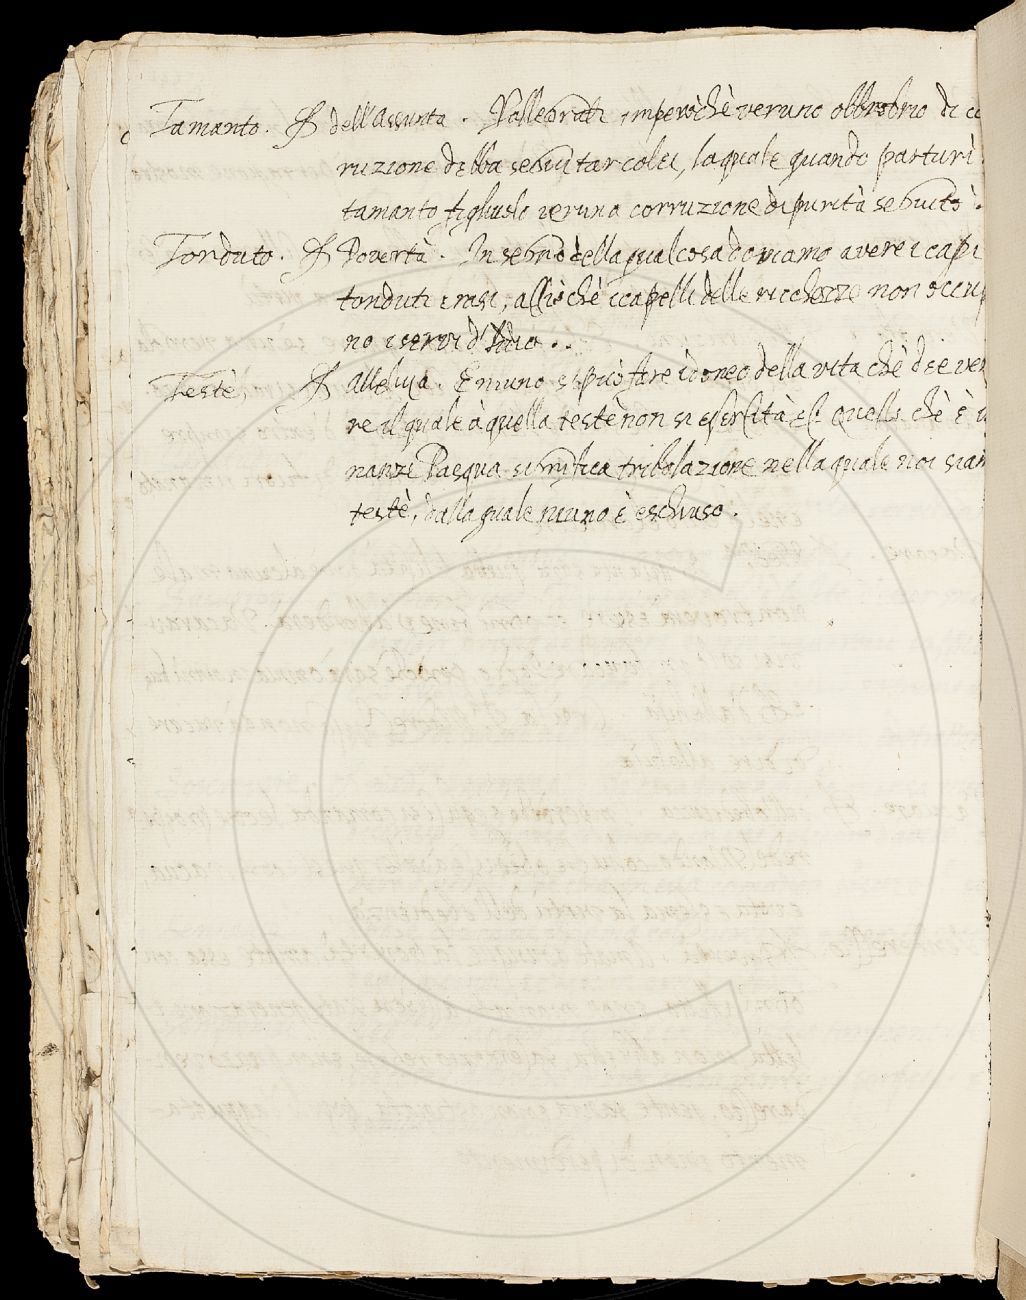 Tamanto. S. dell'Assunta. Rallegrati imperòchè veruno obbrobrio di co
ruzione debba seguitar colei, la quale quando parturì
tamanto figliuolo veruna corruzione di purità seguitò.
Tonduto. S. Povertà. In segno della qual cosa doviamo avere i capi
tonduti e rasi, acciòchè i capelli delle ricchezze non occup
no i servi d'Iddio..
Testè, S. Alleluja. E niuno si può fare idoneo della vita chè dee ven
re il quale à quella testè non si esercità e S. Quello chè è i
nanzi Pasqua significa tribolazione nella quale noi siam
testè, dalla quale niuno è eschiuso.